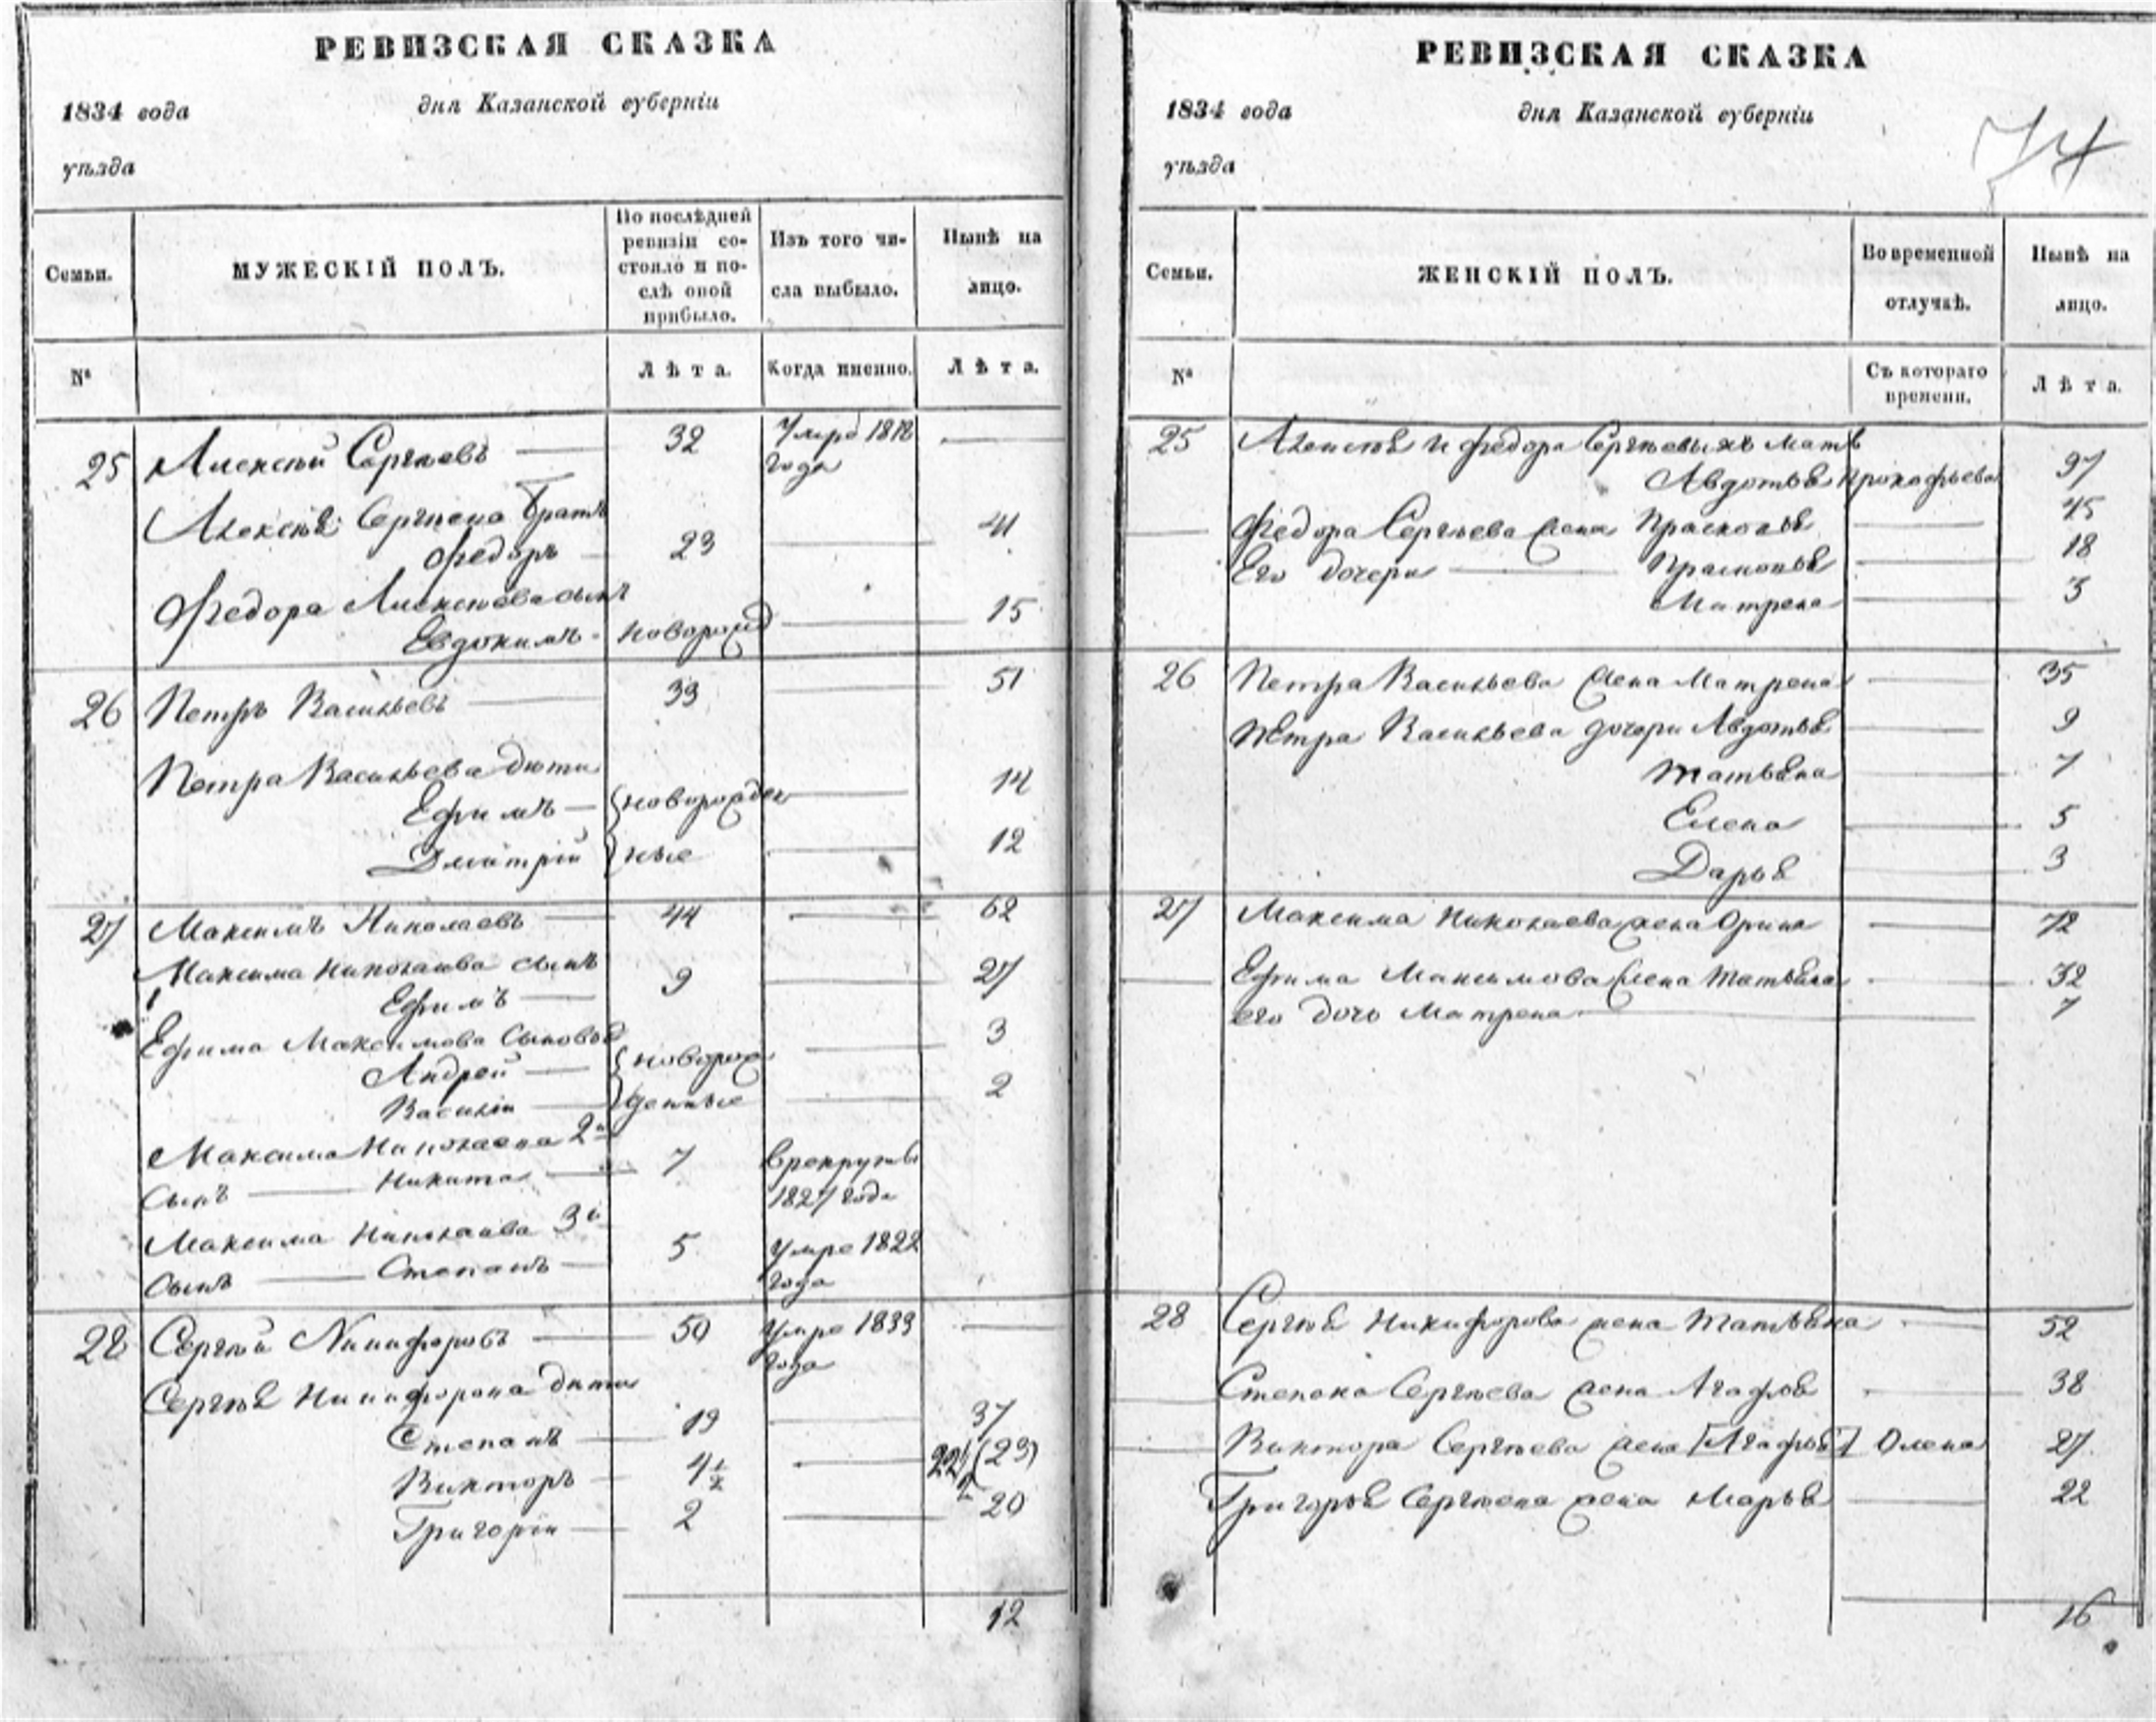 РЕВИЗСКАЯ СКАЗКА
1834 года дня Казанской губерніи
уѣзда
Семьи. МУЖЕСКІЙ ПОЛЪ. По послѣдней ревизіи со-стояло и по-слѣ оной прибыло. Изъ того чи-сла выбыло. Нынѣ на лицо.
№ Лѣта. Когда именно. Лѣта.
25 Алексѣй Сергѣевъ 32 Умре
года
Алексѣя Сергѣева братъ
Федоръ 23 41
Федора Алексѣева сынъ
Евдокимъ новорожд 15
26 Петръ Васильевъ 33 51
Петра Васильева дѣти
Ефимъ новорожден 14
Дмитрій ные 12
27 Максимъ Николаевъ 44 62
Максима Николаева сынъ
Ефимъ 9 27
Ефима Максимова сыновья
Андрей новорож 3
Василіи денные 2
Максима Николаева 2й
сынъ Никита 7 в рекруты
1827 года
Максима Николаева 3й
сынъ Степанъ 5 умре 1822
года
28 Сергѣй Никифоровъ 50 Умре 1833
года
Сергѣя Никифорова дѣти
Степанъ 19 37
Викторъ 4½ 22½ (23)
Григоріи 2 20
12
РЕВИЗСКАЯ СКАЗКА
1834 года дня Казанской губерніи
уѣзда
74
Семьи. ЖЕНСКІЙ ПОЛЪ. Во временной отлучкѣ. Нынѣ на лицо.
№ Съ котораго времени. Лѣта.
25 Алексѣя и Федора Сергѣевыхъ мать
Авдотья Прокофьева 97
Федора Сергѣева жена Прасковья 45
Его дочери Прасковья 18
Матрена 3
26 Петра Васильева жена Матрена 35
Петра Васильева дочери Авдотья 9
Татьяна 7
Елена 5
Дарья 3
27 Максима Николаева жена Орина 72
Ефима Максимова жена Татьяна 32
его дочь Матрена 7
28 Сергѣя Никифорова жена Татьяна 52
Степана Сергѣева жена Агафья 38
Виктора Сергѣева жена [Агафья] Олена 27
Григорья Сергѣева жена Марья 22
16